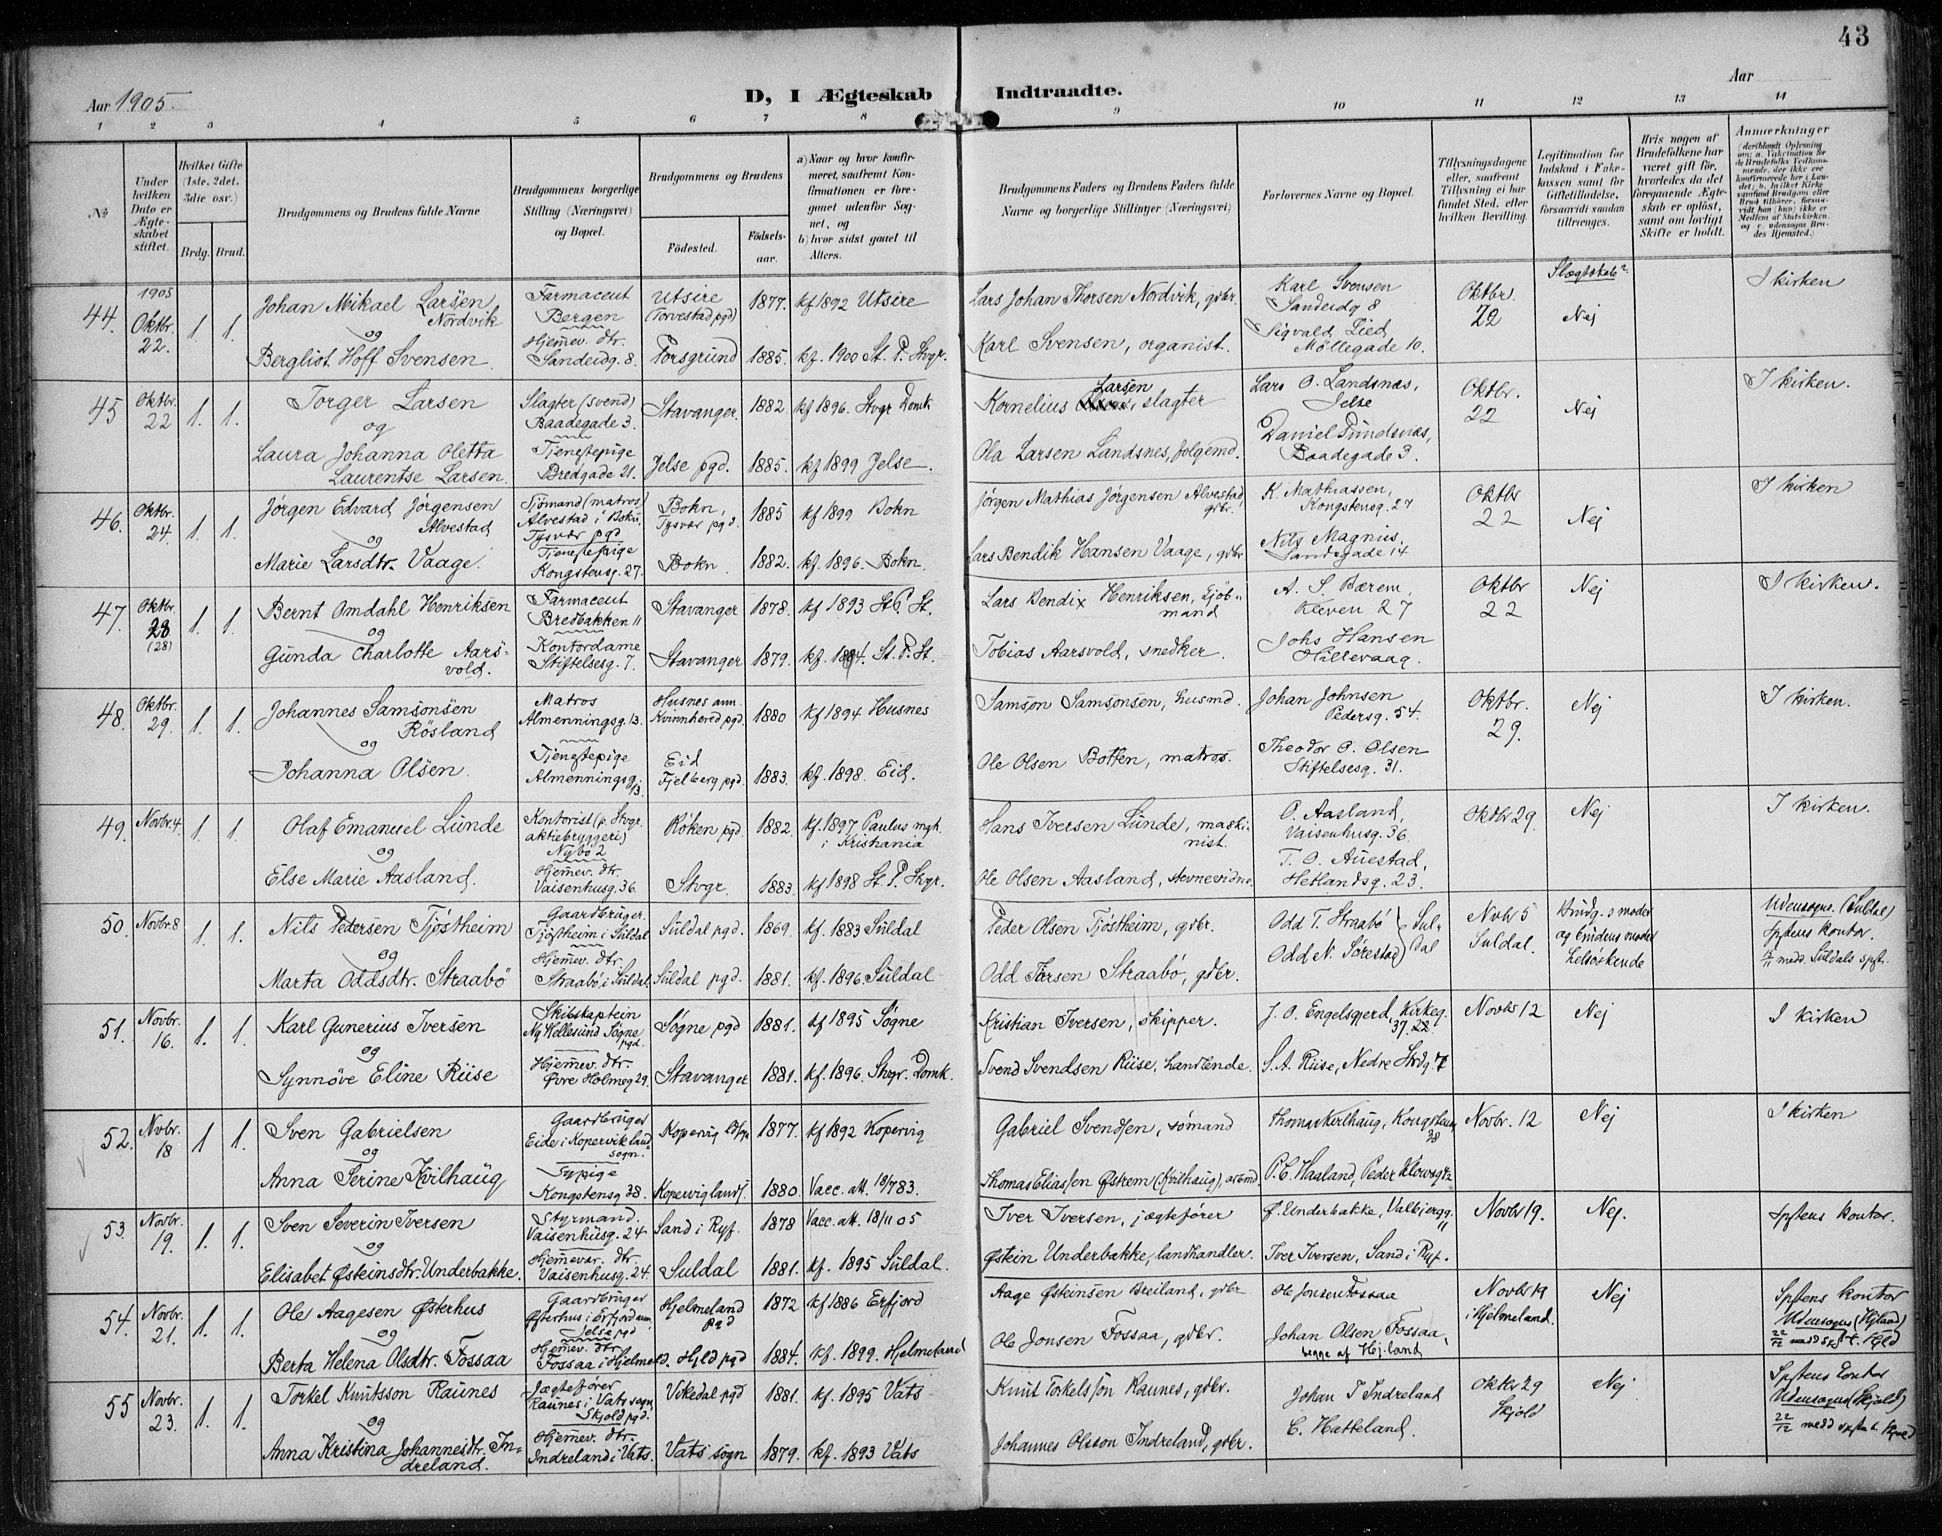 43
Aar 1905.
D, I Ægteskab Indtraadte.
Aar
1 2 3 4 5 6 7 8 9 10 11 12 13 14
No.
Under hvilken Dato er Ægteskabet stiftet.
Hvilket Gifte (1ste, 2det, 3die osv.)
Brdg. Brud.
Brudgommens og Brudens fulde Navne
Brudgommens borgerlige Stilling (Næringsvei) og Bopæl.
Brudgommens og Brudens
Fødested.
Fødselsaar.
a) Naar og hvor konfirmeret, saafremt Konfirmationen er foregaaet udenfor Sognet, og
b) hvor sidst gaaet til Alters.
Brudgommens Faders og Brudens Faders fulde Navne og borgerlige Stillinger (Næringsvei)
Forlovernes Navne og Bopæl.
Tillysningsdagene eller, saafremt Tillysning ei har fundet Sted, efter hvilken Bevilling.
Legitimation for Indskud i Enkekassen samt for Giftetilladelse, forsaavidt saadan tiltrænges.
Hvis nogen af Brudefolkene har været gift før, hvorledes da det foregaaende Ægteskab er opløst, samt om lovligt Skifte er holdt.
Anmærkninger (deriblandt Oplysning om: a. Vakcination for de Brudefolks Vedkommende, der ikke ere konfirmerede her i Landet; b. hvilket Kirkesamfund Brudgom eller Brud tilhører, forsaavidt han (hun) ikke er Medlem af Statskirken, og c. udensogns Brudes Hjemsted.)
44. 1905 Oktbr. 22. 1. 1. Johan Mikael Larsen Nordvik
og
Bergliot Hoff Svensen.
Farmaceut Bergen
Hjemev. dtr. Sandeidg. 8.
Utsire (Torvestad pgd) 1877. kf 1892 Utsire
Porsgrund 1885. kf. 1900 St. P. Stvgr.
Lars Johan Thorsen Nordvik, gdbr.
Karl Svensen, organist.
Karl Svensen Sandeidg 8
Sigvald Lied Möllegade 10.
Oktbr. 22
Nej
I kirken
45 Oktbr. 22 1. 1. Torger Larsen
og
Laura Johanna Oletta Laurentse Larsen.
Slagter (svend) Baadegade 3.
Tjenestepige Bredgade 21.
Stavanger. 1882. kf 1896. Stvgr Domk
Jelse pgd. 1885. kf 1899 Jelse.
Kornelius Larsen, slagter
Ola Larsen Landsnes, folgemd.
Lars O. Landsnæs, Jelse
Daniel Sundsnæs, Baadegade 3.
Oktbr. 22
Nej
I kirken.
46. Oktbr. 24. 1. 1. Jørgen Edvard Jørgensen Alvestad
og
Marie Larsdtr. Vaage.
Sjömand (matros) Alvestad i Bokn, Tysvær pgd
Tjenestepige Kongstensg. 27.
Bokn, Tysvær pgd. 1885 kf 1899 Bokn
Bokn. 1882. kf. 1896. Bokn.
Jörgen Mathias Jörgensen Alvestad gdbr.
Lars Bendik Hansen Vaage, gdbr
K. Mathiassen, Kongstensg. 27
Nils Magnus, Sandsgade 14
Oktbr 22
Nej
I kirken
47. Oktbr. 28 (28) 1. 1. Bernt Omdahl Henriksen
og
Gunda Charlotte Aarsvold.
Farmaceut Bredbakken 11
Kontordame Stiftelsesg. 7.
Stavanger 1878. kf 1893 St P. St.
Stavanger 1879. kf. 1894. St. P. St.
Lars Bendix Henriksen, Sjöbmand
Tobias Aarsvold, snedker.
A. S. Bærem, Kleven 27
Johs Hansen Hillevaag.
Oktbr 22
Nej
I kirken.
48. Oktbr. 29. 1. 1. Johannes Samsonsen Rösland
og
Johanna Olsen.
Matros Almenningsg. 13.
Tjenestepige Almenningsg. 13.
Husnes ann. Kvinnhered pgd. 1880 kf 1894 Husnes
Eid Fjelberg pgd. 1883. kf. 1898. Eid.
Samson Samsonsen, husmd.
Ole Olsen Botten, matros.
Johan Johnsen Pedersg. 54.
Theodor O. Olsen Stiftelsesg. 31.
Oktbr. 29.
Nej
I kirken.
49. Novbr. 4. 1. 1. Olaf Emanuel Lunde
og
Else Marie Aasland.
Kontorist (p. Stvgr. aktiebryggeri) Nybö 2
Hjemev. dtr. Vaisenhusg. 36.
Röken pgd. 1882. kf. 1897 Paulus mgh. i Kristiania
Stvgr. 1883. kf 1898 St. P. Stvgr.
Hans Iversen Lunde, maskinist.
Ole Olsen Aasland, stevnevidne.
O. Aasland, Vaisenhusg. 36.
T. O. Auestad, Hetlandsg. 23.
Oktbr 29.
Nej
I kirken.
50. Novbr. 8 1. 1. Nils Pedersen Tjöstheim
og
Marta Oddsdtr. Straabö
Gaardbruger. Tjöstheim i Suldal
Hjemev. dtr. Straabö i Suldal.
Suldal pgd. 1869. kf. 1883 Suldal
Suldal pgd. 1881. kf. 1896. Suldal
Peder Olsen Tjöstheim, gdbr.
Odd Straabö, gdbr.
Odd T. Straabö
Odd N. Sörestad
Suldal
Novbr 5 Suldal.
Brudg. s moder og brudens moder
Udensogns. (Suldal) Spftens kontor.
medd. Suldals spft.
51. Novbr. 16. 1. 1. Karl Gunerius Iversen
og
Synnöve Eline Riise
Skibskaptein Ny Hellesund Søgne pgd.
Hjemev. dtr. Øvre Holmeg 29.
Søgne pgd 1881. kf 1895 Søgne
Stavanger 1881. kf. 1896. Stvgr. Domk.
Kristian Iversen, skipper.
Svend Svendsen Riise, handlende.
J. O. Engelsgjerd, Kirkeg. 37.
S. A. Riise, Nedre Strdg. 7
Novbr 12
Nej
I kirken
52. Novbr. 18 1. 1. Sven Gabrielsen
og
Anna Serine Kvilhaug
Gaardbruger Eide i Kopervik landsogn.
Sypige Kongstensg 38.
Kopervig 1877. kf 1892 Kopervig
Kopervig lands. 1880. Vacc. att. 18/7 83.
Gabriel Svendsen, sømand
Thomas Eliassen Østrem (Kvilhaug),
Thomas Kvilhaug, Kongstensg 38
P. C. Haaland, Peder Klowsg
Novbr. 12
Nej
I kirken
53. Novbr. 19. 1. 1. Sven Severin Iversen
og
Elisabet Østeinsdtr. Underbakke.
Styrmand. Vaisenhusg. 24
Hjemev. dtr Vaisenhusg. 24.
Sand i Ryf. 1878 Vacc. att. 18/11 05
Suldal 1881. kf. 1895 Suldal.
Iver Iversen, jægtefører
Østein Underbakke, landhandler.
Underbakke, Valbjergg. 11
Iver Iversen, Sand i Ryf.
Novbr 19.
Nej.
Spftens kontor.
54. Novbr. 21. 1. 1. Ole Aagesen Østerhus
og
Berta Helena Olsdtr. Fossaa
Gaardbruger Østerhus i Erfjord ann. Jelse pgd
Hjemev. dtr Fossaa i Hjelmeld.
Hjelmeland pgd 1872 kf 1886 Erfjord
Hjld pgd 1884. kf. 1899. Hjelmeland
Aage Østeinsen Breiland, gdbr
Ole Jonsen Fossaa, gdbr.
Ole Jonsen Fossaa
Johan Olsen Fossaa, begge af Hj.land
Novbr 19 i Hjelmeland.
Nej
Spftens kontor Udensogns (Hjland)
55 Novbr. 23. 1. 1. Torkel Knutsson Raunes
og
Anna Kristina Johannesdtr. Indreland.
Jægtefører Raunes i Vats sogn, Skjold pgd.
Hjemev. dtr. Indreland i Vats.
Vikedal pgd 1881. kf. 1895 Vats
Vats sogn 1879. kf. 1893 Vats
Knut Torkelsson Raunes, gdbr.
Johannes Olsson Indreland, gdbr.
Johan T Indreland
C. Hatteland.
Oktbr 29 Skjold
Nej
Spftens kontor Udensogns (Skjold)